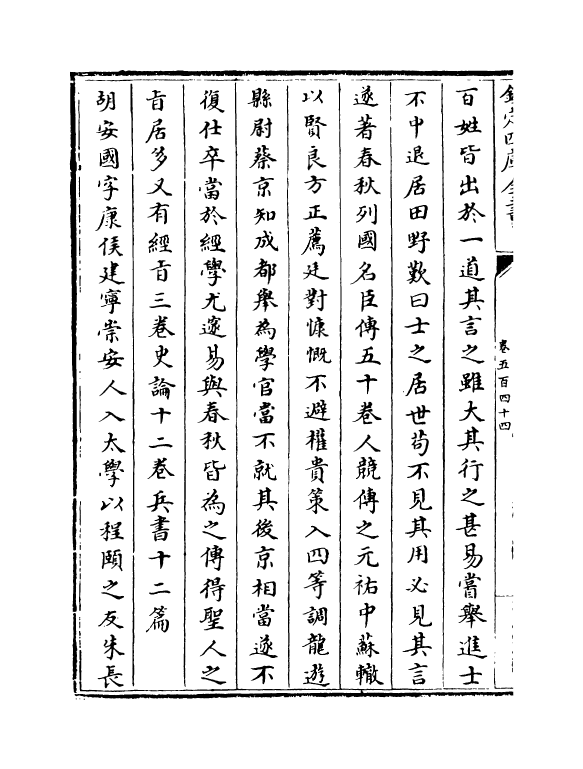 欽定四庫全書
卷五百四十四
百姓皆出於一道其言之雖大其行之甚易嘗舉進士
不中退居田野歎曰士之居世苟不見其用必見其言
遂著春秋列國名臣傳五十卷人競傳之元祐中蘇轍
以賢良方正薦廷對慷慨不避權貴策入四等調龍游
縣尉蔡京知成都舉為學官當不就其後京相當遂不
復仕卒當於經學尤邃易與春秋皆為之傳得聖人之
旨居多又有經旨三卷史論十二卷兵書十二篇
胡安國字康侯建寧崇安人入太學以程頤之友朱長